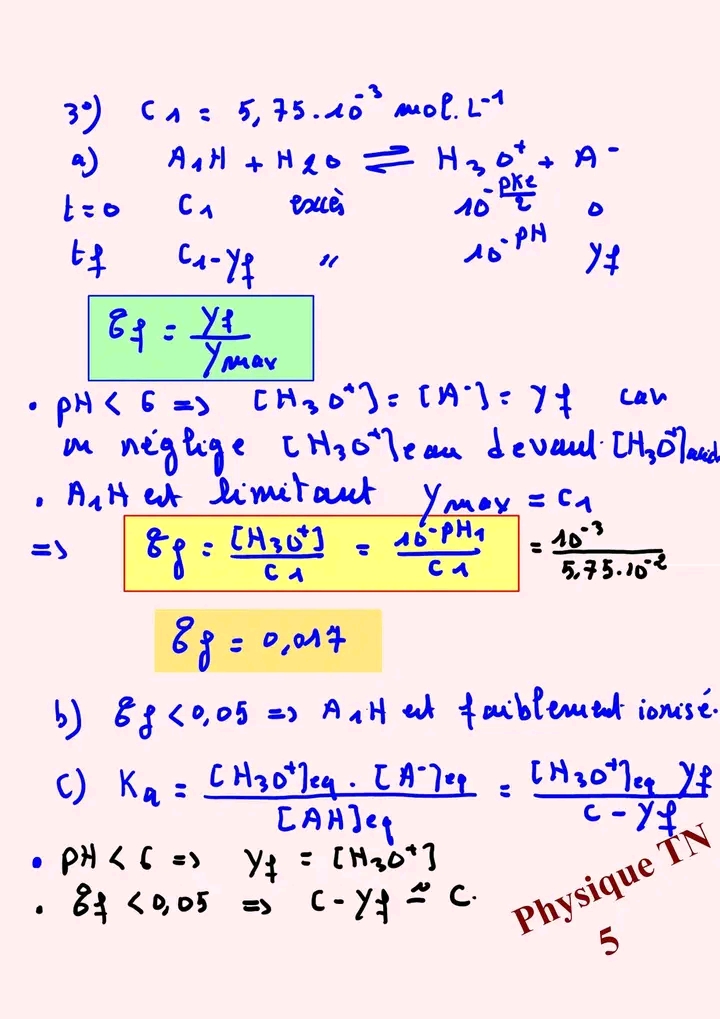 3°) C1 = 5,75.10^-3 mol.L^-1
a) A1H + H2O ⇌ H3O^+ + A^-
t=0 C1 excès 10^-pKe/2 0
tf C1-yf " 10^-pH yf
τf = yf / ymax
• pH < 6 => [H3O^+] = [A^-] = yf car
on néglige [H3O^+]eau devant [H3O^+]acide
• A1H est limitant ymax = C1
=> τf = [H3O^+] / C1 = 10^-pH1 / C1 = 10^-3 / 5,75.10^-2
τf = 0,017
b) τf < 0,05 => A1H est faiblement ionisé.
c) Ka = [H3O^+]eq . [A^-]eq / [AH]eq = [H3O^+]eq yf / C - yf
• pH < 6 => yf = [H3O^+]
• τf < 0,05 => C - yf ≃ C.
Physique TN
5